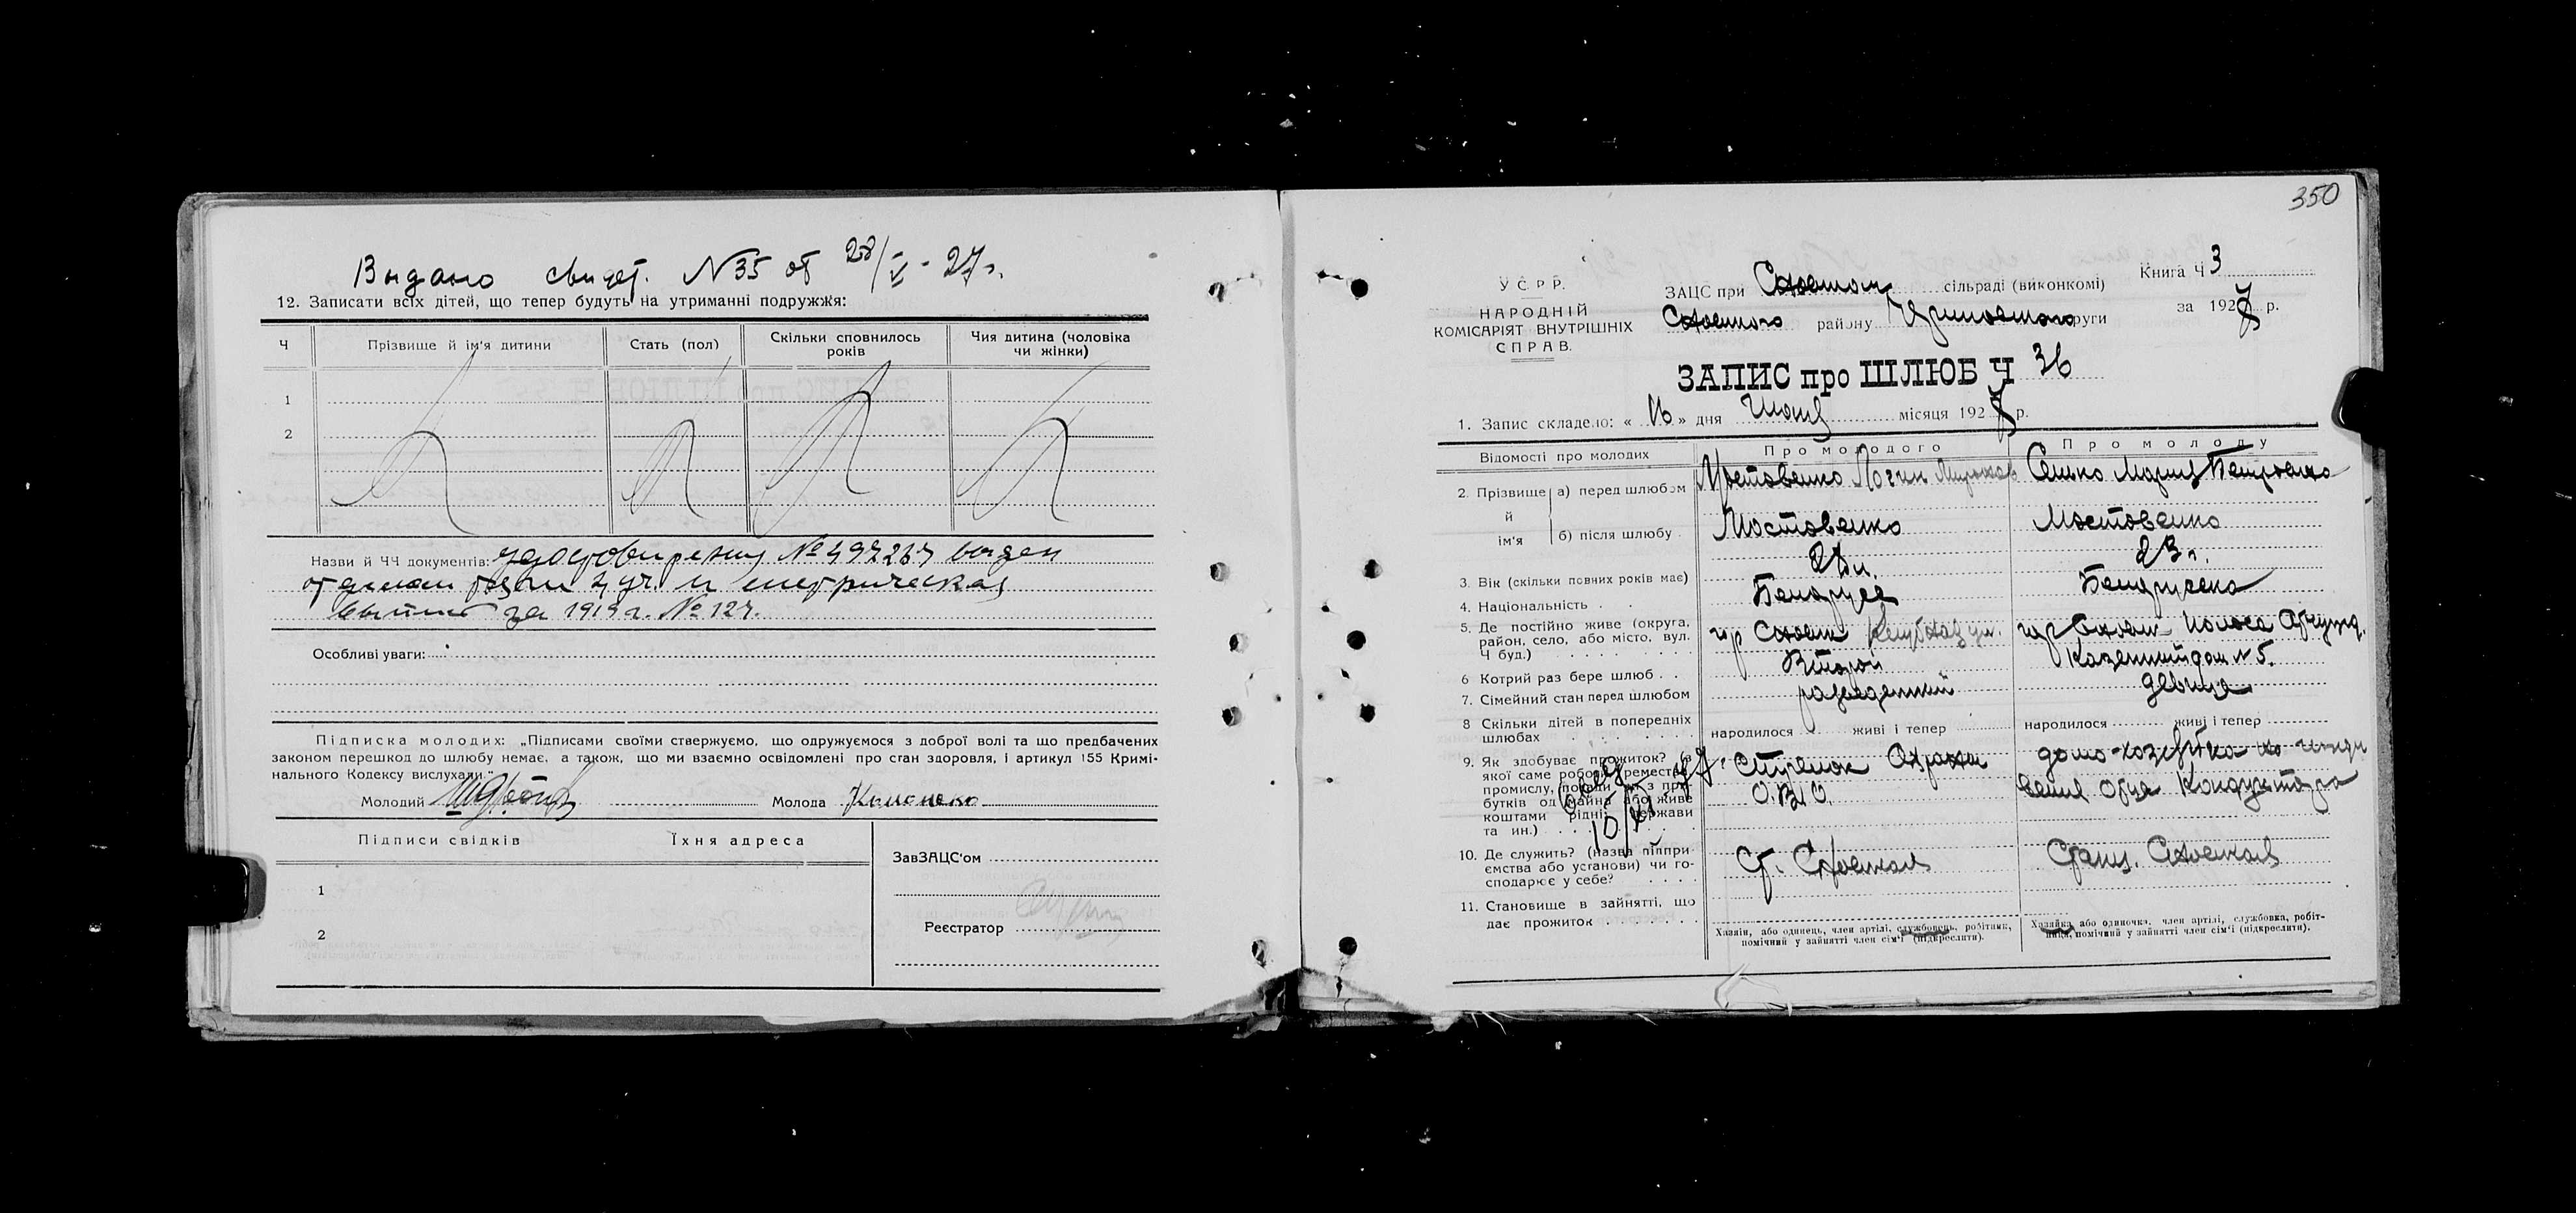 Выдано свидет. N35 от 28/V - 27 г.
12. Записати всіх дітей, що тепер будуть на утриманні подружжя:
Ч
Прізвище й ім'я дитини
Стать (пол)
Скільки сповнилось років
Чия дитина (чоловіка чи жінки)
1
2
Назви й ЧЧ документів: №497267 выдан
и метрическая
за 1919 г. № 127.
Особливі уваги:
Підписка молодих: „Підписами своїми ствержуємо, що одружуємося з доброї волі та що предбачених
законом перешкод до шлюбу немає, а також, що ми взаємно освідомлені про стан здоров'я, і артикул 155 Кримі-
нального Кодексу вислухали."
Молодий
Молода
Підписи свідків
Їхня адреса
1
2
ЗавЗАЦС'ом
Реєстратор
350
У С Р Р.
НАРОДНІЙ
КОМІСАРІЯТ ВНУТРІШНІХ
СПРАВ.
ЗАЦС при Сновском сільраді (виконкомі)
Сновского району округи
Книга Ч 3
за 1927 р.
ЗАПИС про ШЛЮБ Ч 36
1. Запис складено: « 16 » дня місяця 1927 р.
Відомості про молодих
Про молодого
Про молоду
2. Прізвище й ім'я
а) перед шлюбом
Мостовенко Логин
Мария Петровна
б) після шлюбу
Мостовенко
Мостовенко
3. Вік (скільки повних років має)
23 г.
4. Національність
Белорусс
Белорусска
5. Де постійно живе (округа, район, село, або місто, вул. Ч буд.)
гор Сновск
гор Сновск полоса Отчужд.
Казенный дом N 5.
6 Котрий раз бере шлюб
Второй
7. Сімейний стан перед шлюбом
разведенный
девица
8 Скільки дітей в попередніх шлюбах
народилося живі і тепер
народилося живі і тепер
9. Як здобуває прожиток? (з якої саме роботи, ремества, промислу, поради чи з прибутків од майна або живе коштами рідні, держави та ин.)
Стрелок Охраны
домо-хозяйка на иждивении отца Кондуктора
10. Де служить? (назва підприємства або установи) чи господарює у себе?
ст. Сновская
станц. Сновская
11. Становище в зайнятті, що дає прожиток
Хазяїн, або одинець, член артілі, службовець, робітник, помічний у зайнятті член сім'ї (підкреслити).
Хазяйка або одиночка, член артілі, службовка, робітниця, помічний у зайнятті член сім'ї (підкреслити).